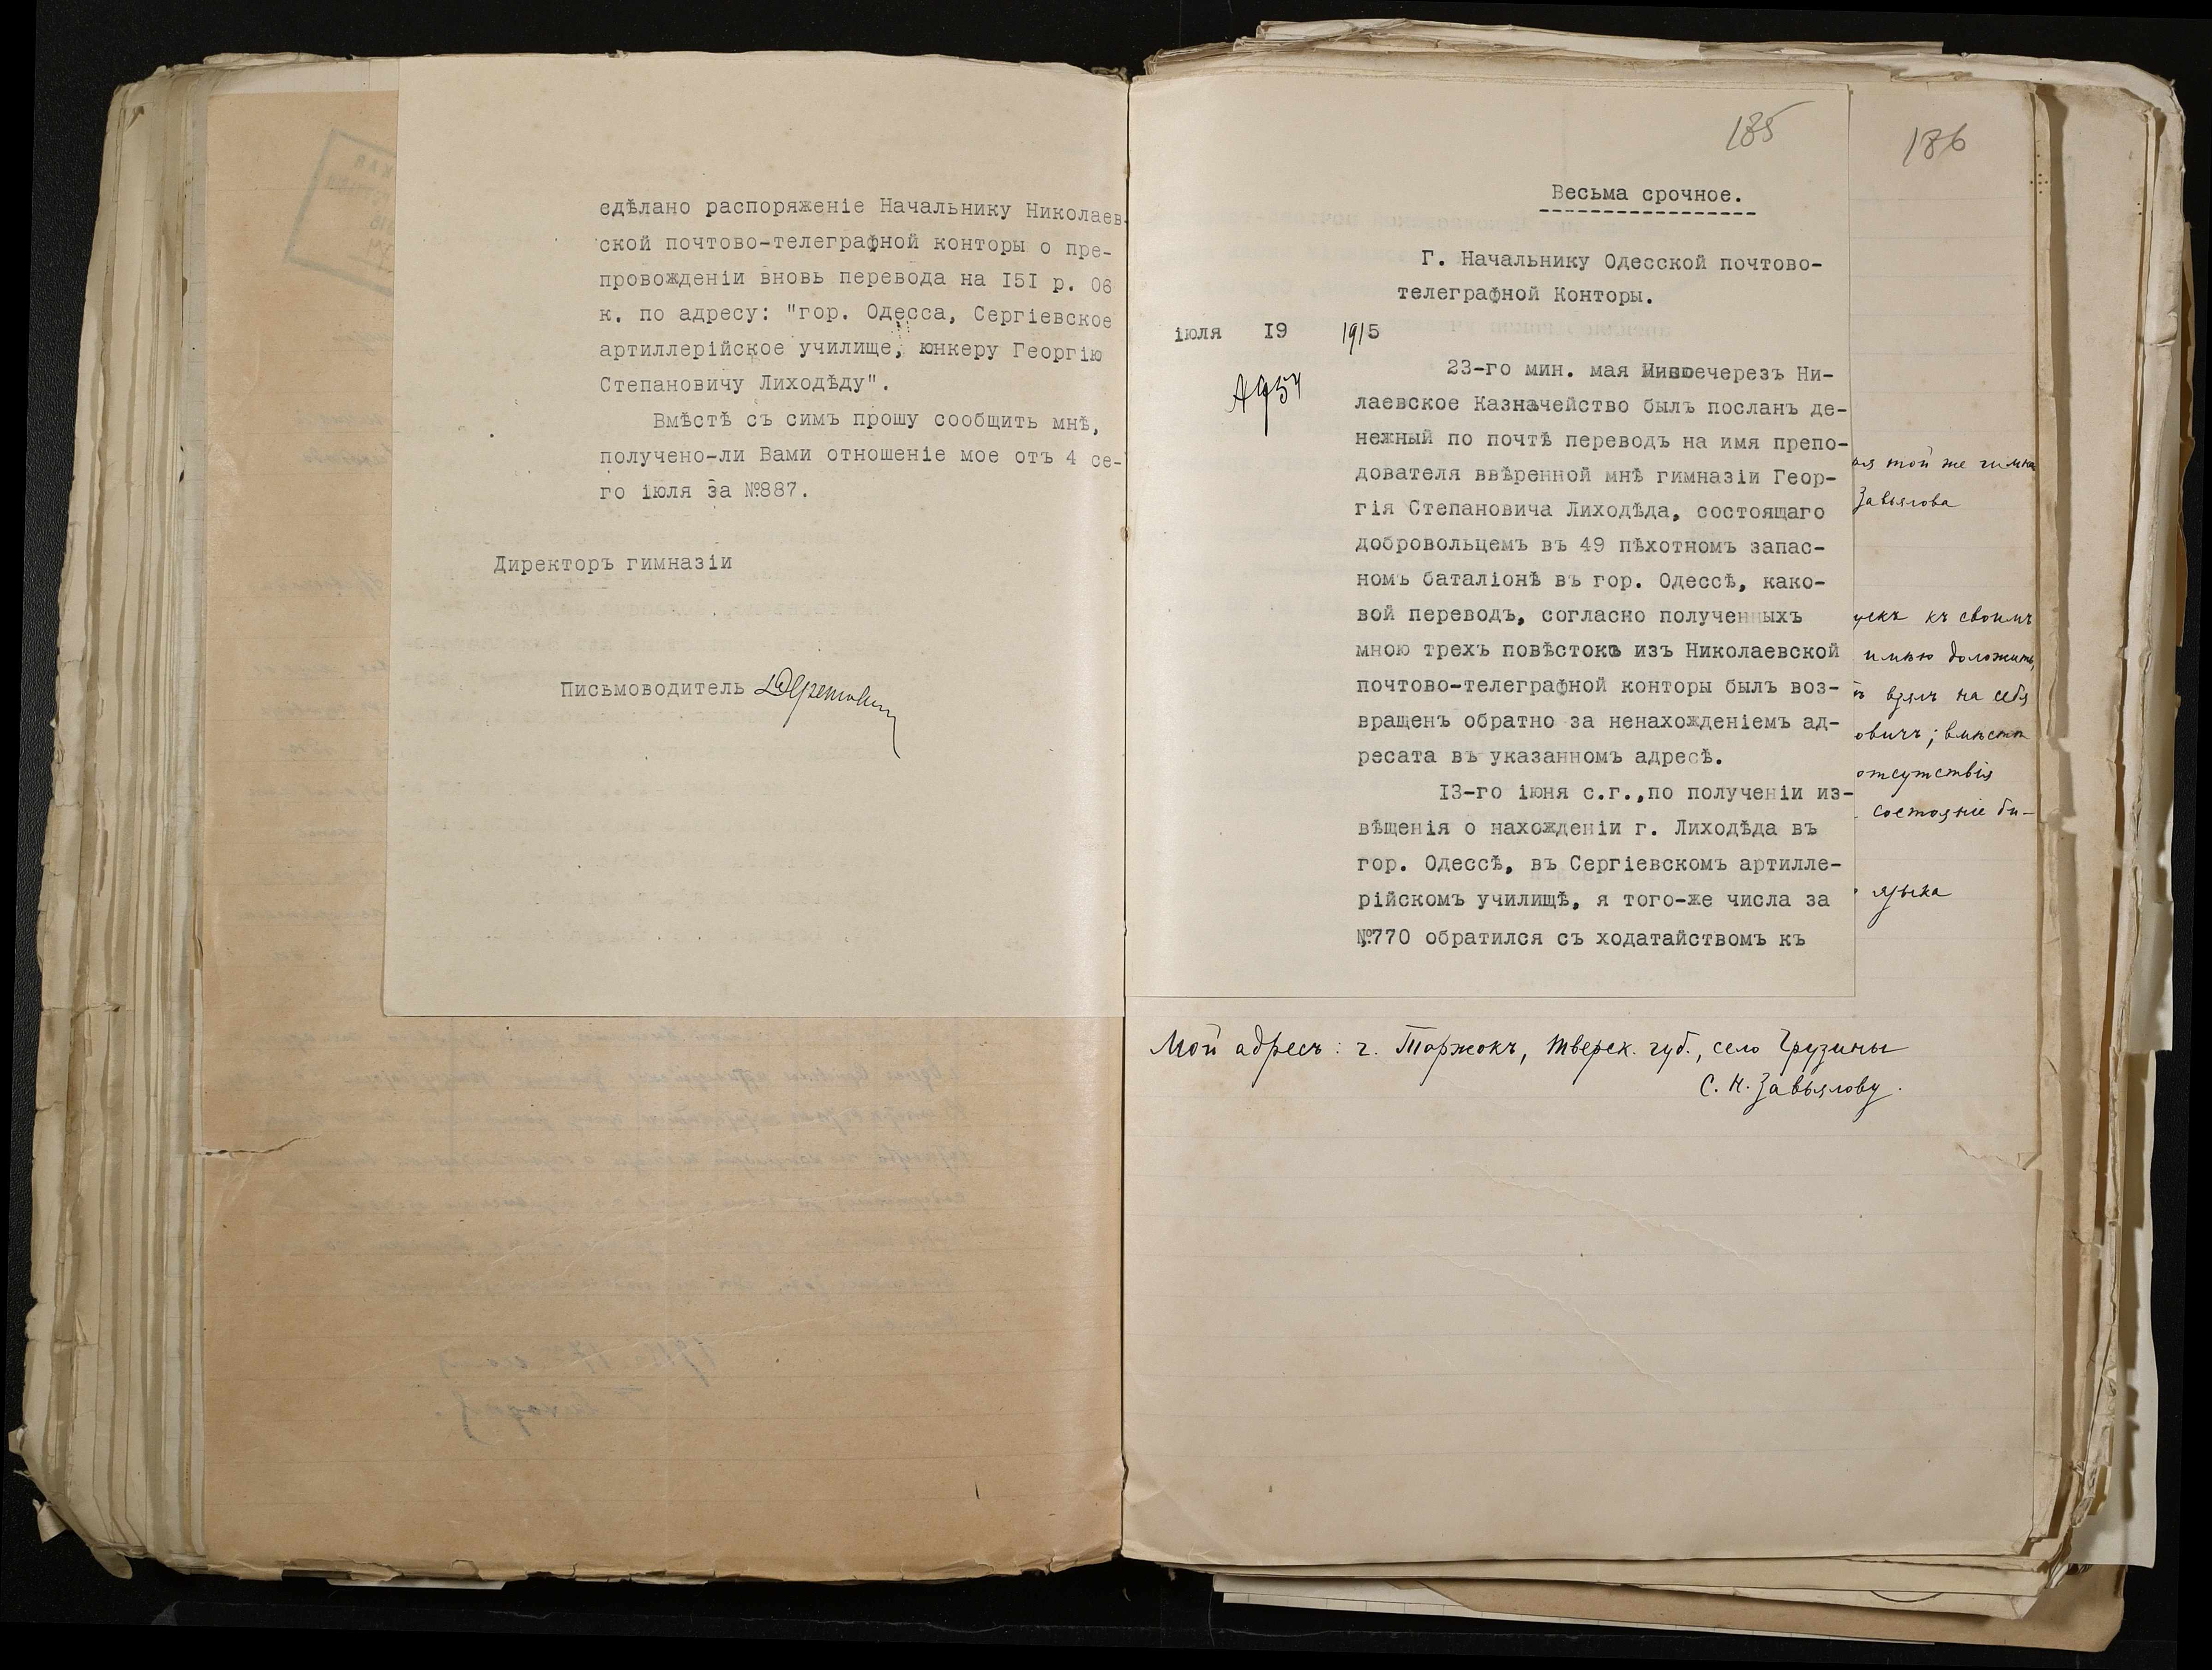 сдѣлано распоряженіе Начальнику Николаев-
ской почтово-телеграфной конторы о пре-
провожденіи вновь перевода на I5I р. 06
к. по адресу: "гор. Одесса, Сергіевское
артиллерійское училище, юнкеру Георгію
Степановичу Лиходѣду".
Вмѣстѣ съ симъ прошу сообщить мнѣ,
получено-ли Вами отношеніе мое отъ 4 се-
го іюля за №887.
Директоръ гимназіи
Письмоводитель
185
186
Весьма срочное.
Г. Начальнику Одесской почтово-
телеграфной Конторы.
іюля I9 1915
957
23-го мин. мая черезъ Ни-
лаевское Казначейство былъ посланъ де-
нежный по почтѣ переводъ на имя препо-
дователя ввѣренной мнѣ гимназіи Геор-
гія Степановича Лиходѣда, состоящаго
добровольцемъ въ 49 пѣхотномъ запас-
номъ баталіонѣ въ гор. Одессѣ, како-
вой переводъ, согласно полученныхъ
мною трехъ повѣстокъ изъ Николаевской
почтово-телеграфной конторы былъ воз-
вращенъ обратно за ненахожденіемъ ад-
ресата въ указанномъ адресѣ.
I3-го іюня с.г.,по полученіи из-
вѣщенія о нахожденіи г. Лиходѣда въ
гор. Одессѣ, въ Сергіевскомъ артилле-
рійскомъ училищѣ, я того-же числа за
№770 обратился съ ходатайствомъ къ
той же гимна
Завьялова
къ своимъ
имѣю доложить,
взялъ на себя
овичъ; вмѣстѣ
отсутствія
состояніе би-
языка
Мой адресъ: г. Торжокъ, Тверск. губ., село Грузины
С. Н. Завьялову.